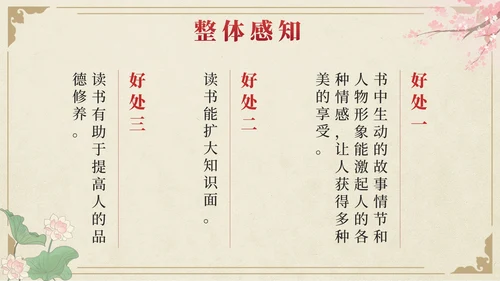 整体感知
好处一
书中生动的故事情节和
人物形象能激起人的各
种情感，让人获得多种
美的享受。
好处二
读书能扩大知识面。
好处三
读书有助于提高人的品
德修养。